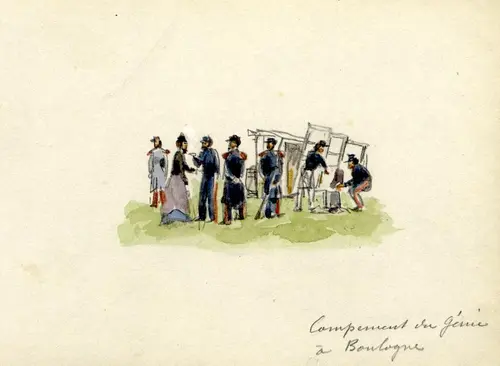 Campement du Génie
à Boulogne